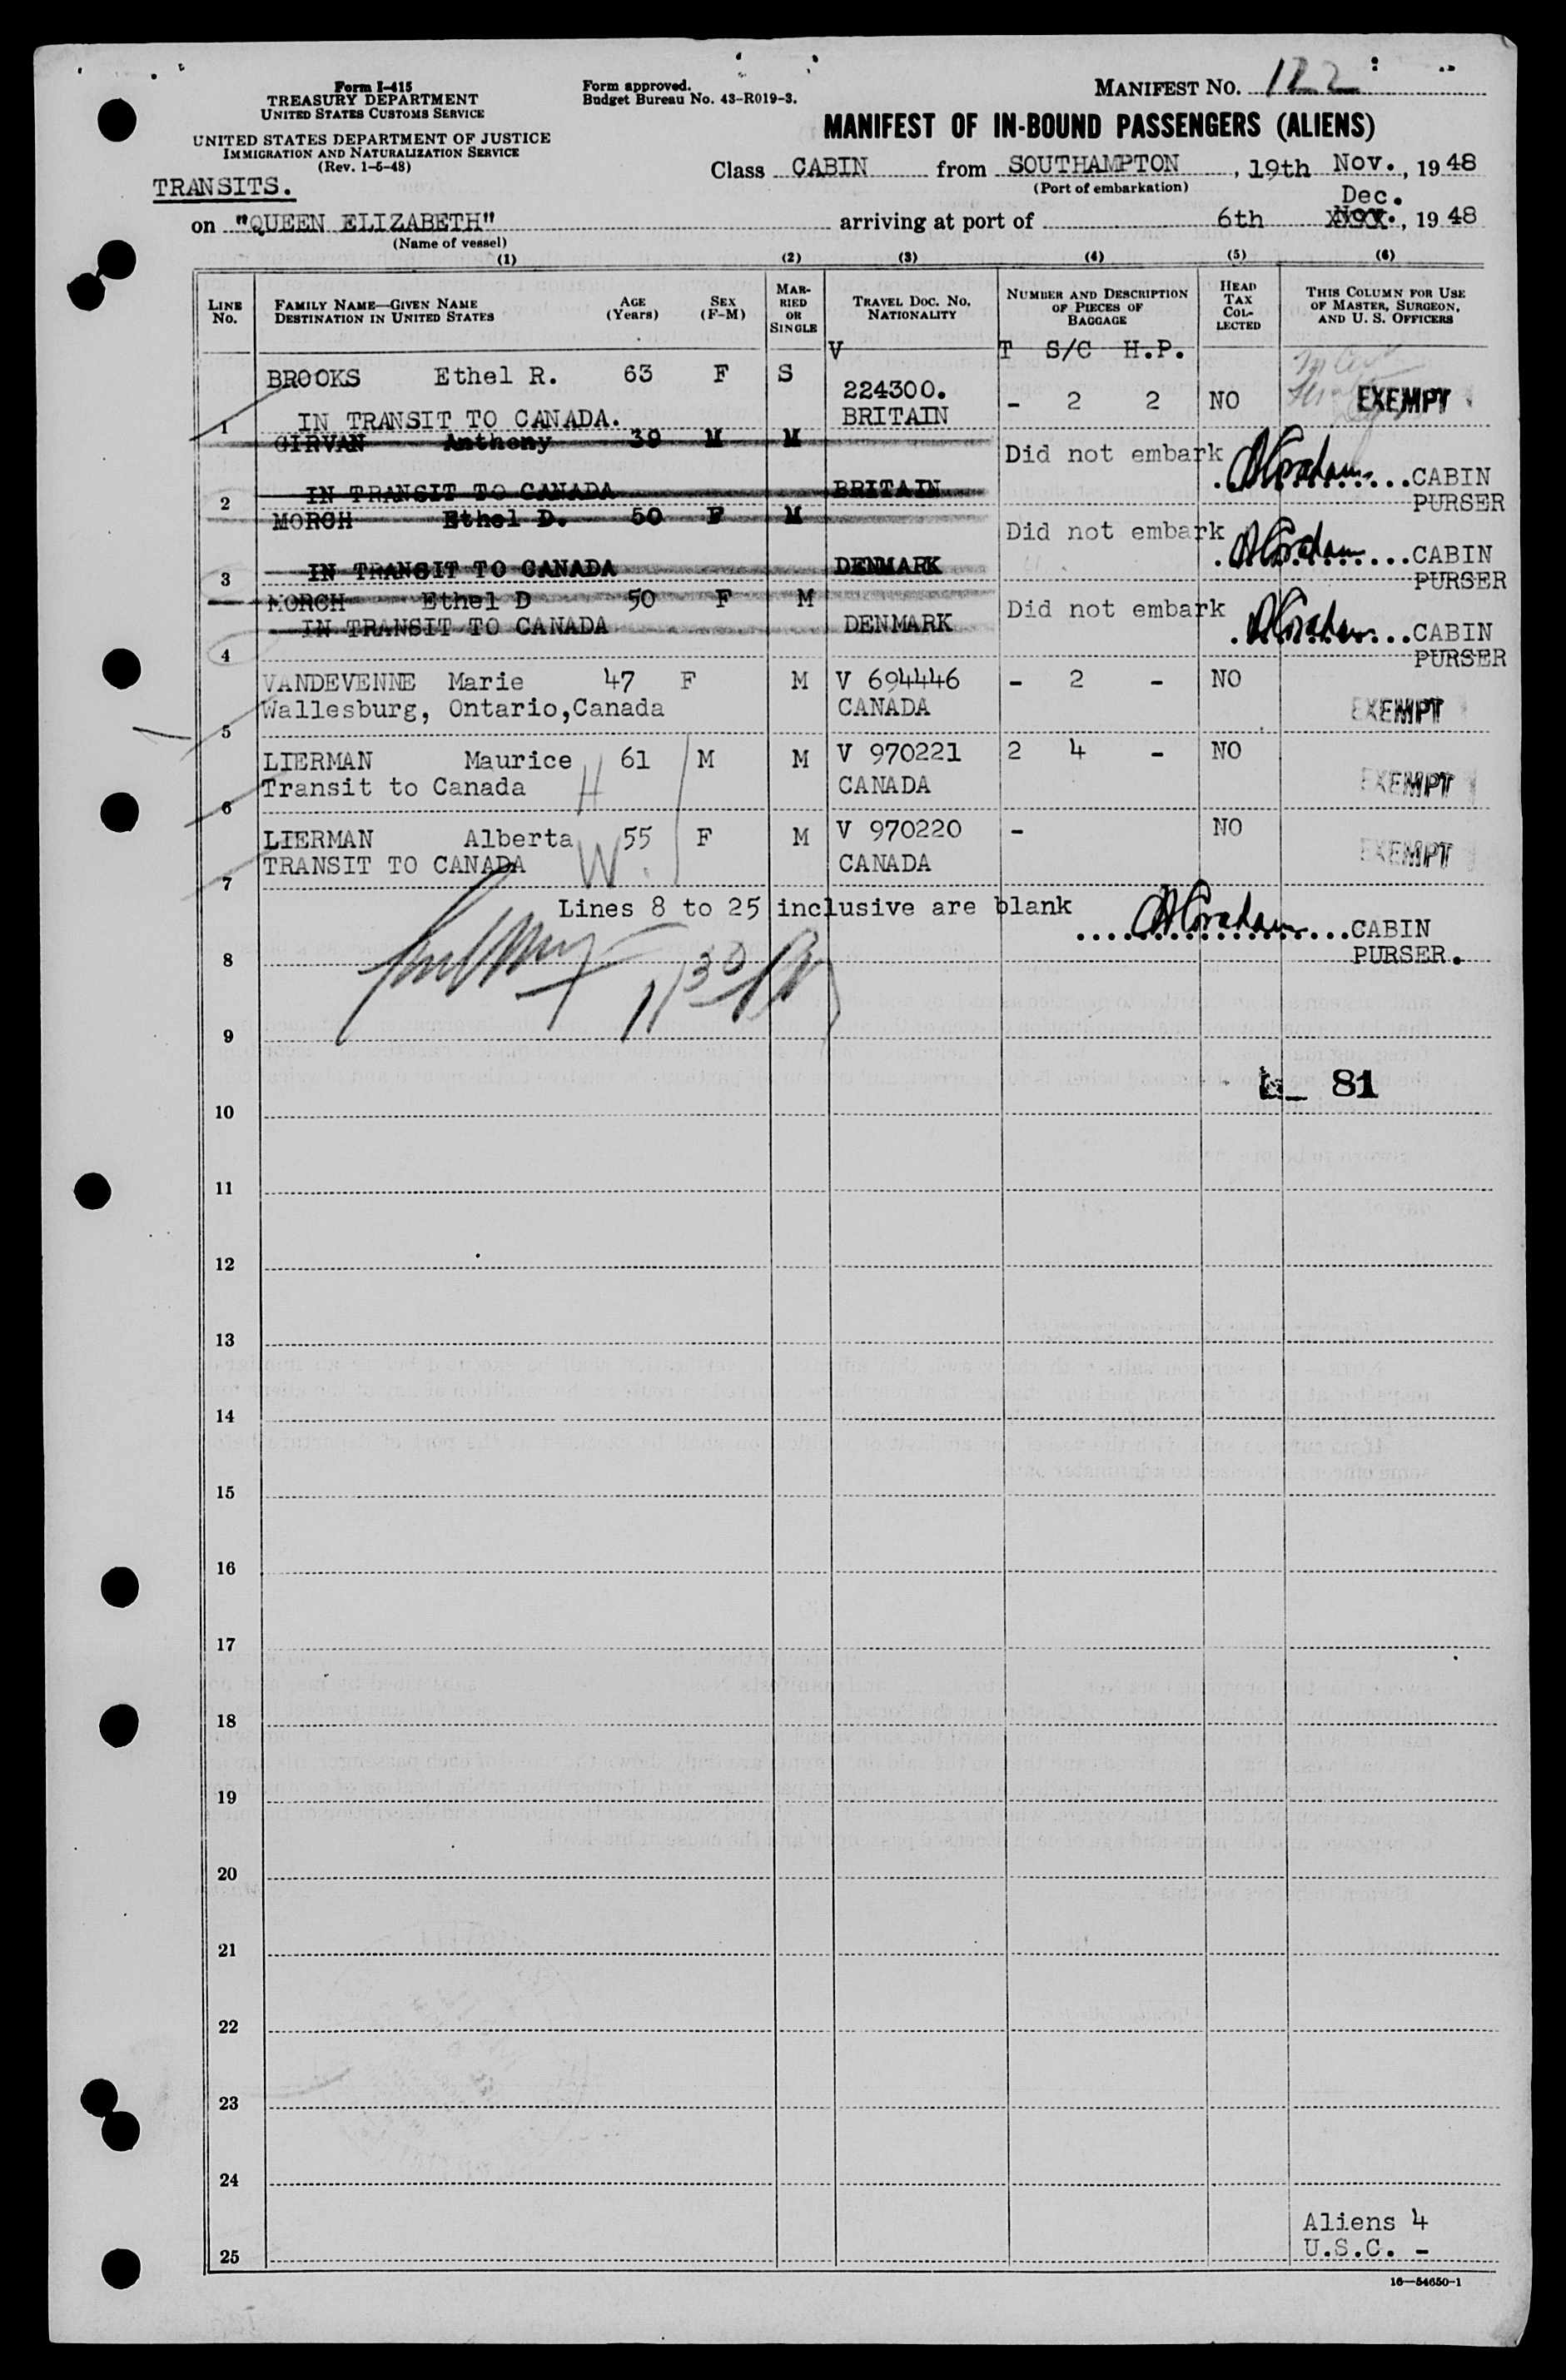 Form I-415
TREASURY DEPARTMENT
UNITED STATES CUSTOMS SERVICE
UNITED STATES DEPARTMENT OF JUSTICE
IMMIGRATION AND NATURALIZATION SERVICE
(Rev. 1-5-48)
Form approved.
Budget Bureau No. 43-R019-3.
MANIFEST NO. 122
MANIFEST OF IN-BOUND PASSENGERS (ALIENS)
Class CABIN from SOUTHAMPTON, 19th Nov., 1948
(Port of embarkation)
TRANSITS.
Dec.
on "QUEEN ELIZABETH" arriving at port of 6th Nov., 1948
(Name of vessel)
(1) (2) (3) (4) (5) (6)
LINE No. FAMILY NAME—GIVEN NAME DESTINATION IN UNITED STATES AGE (Years) SEX (F-M) MARRIED OR SINGLE TRAVEL DOC. NO. NATIONALITY NUMBER AND DESCRIPTION OF PIECES OF BAGGAGE HEAD TAX COLLECTED THIS COLUMN FOR USE OF MASTER, SURGEON, AND U. S. OFFICERS
V T S/C H.P.
BROOKS Ethel R. 63 F S 224300. - 2 2 NO EXEMPT
1 IN TRANSIT TO CANADA. BRITAIN
GIRVAN Anthony 30 M M Did not embark
2 IN TRANSIT TO CANADA BRITAIN CABIN PURSER
MORCH Ethel D. 50 F M Did not embark
3 IN TRANSIT TO CANADA DENMARK CABIN PURSER
MORCH Ethel D 50 F M Did not embark
4 IN TRANSIT TO CANADA DENMARK CABIN PURSER
VANDEVENNE Marie 47 F M V 694446 - 2 - NO
5 Wallesburg, Ontario,Canada CANADA EXEMPT
LIERMAN Maurice 61 M M V 970221 2 4 - NO
H
6 Transit to Canada CANADA EXEMPT
LIERMAN Alberta 55 F M V 970220 - NO
W
7 TRANSIT TO CANADA CANADA EXEMPT
Lines 8 to 25 inclusive are blank
8 CABIN PURSER.
9
81
10
11
12
13
14
15
16
17
18
19
20
21
22
23
24
Aliens 4
25 U.S.C. -
16—54650-1